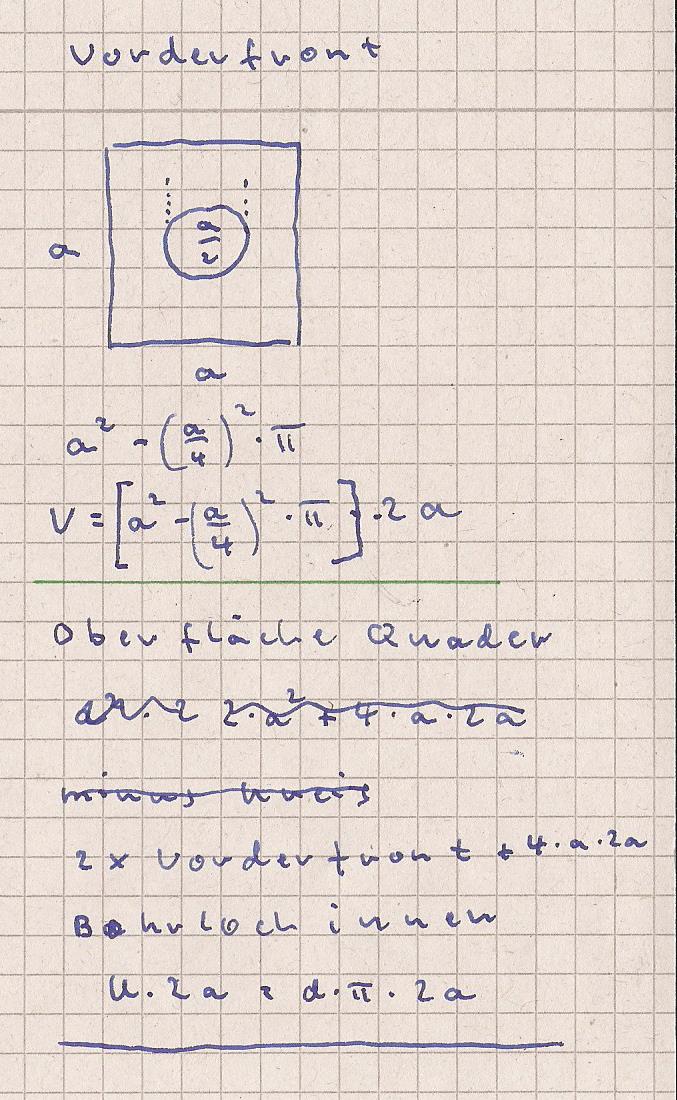 Vorderfront
a/2
a
a
a² - (a/4)² · π
V = [a² - (a/4)² · π] · 2a
Oberfläche Quader
2 · a² + 4 · a · 2a
minus Kreis
2 x Vorderfront + 4 · a · 2a
Bohrloch innen
U · 2a = d · π · 2a